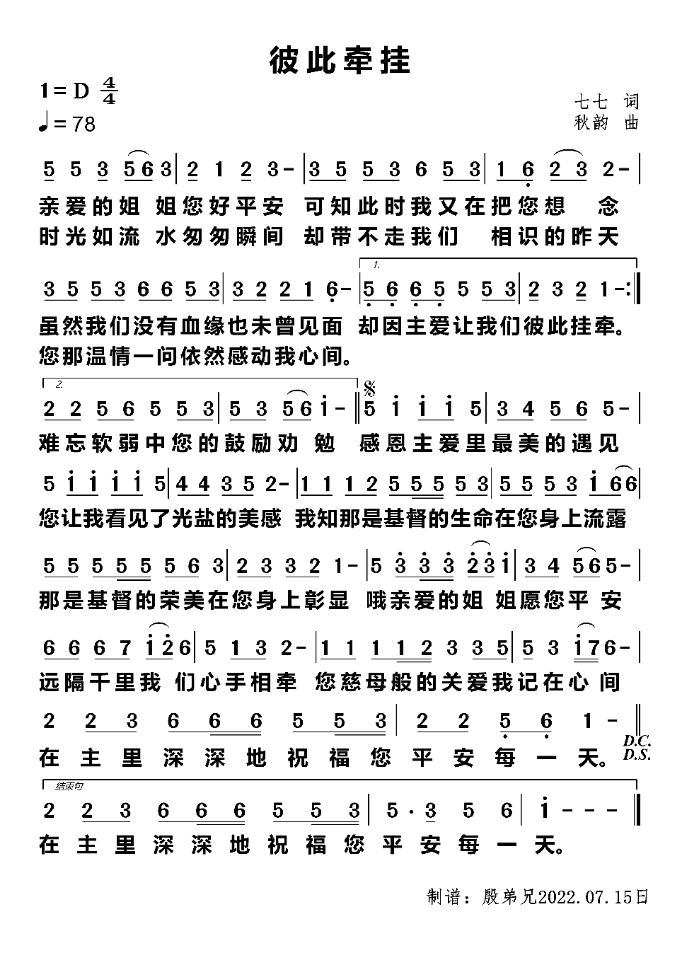 彼此牵挂
1=D 4/4
♩=78
七七 词
秋韵 曲
5 5 3 5 6 3 | 2 1 2 3 - | 3 5 5 3 6 5 3 | 1 6 2 3 2 - |
亲爱的姐 姐您好平安 可知此时我又在把您想 念
时光如流 水匆匆瞬间 却带不走我们 相识的昨天
1.
3 5 5 3 6 6 5 3 | 3 2 2 1 6 - | 5 6 6 5 5 5 3 | 2 3 2 1 - :|
虽然我们没有血缘也未曾见面 却因主爱让我们彼此挂牵。
您那温情一问依然感动我心间。
2.
2 2 5 6 5 5 3 | 5 3 5 6 i - ‖ 5 i i i 5 | 3 4 5 6 5 - |
难忘软弱中您的鼓励劝 勉 感恩主爱里最美的遇见
5 i i i i 5 | 4 4 3 5 2 - | 1 1 1 2 5 5 5 5 3 | 5 5 5 3 i 6 6 |
您让我看见了光盐的美感 我知那是基督的生命在您身上流露
5 5 5 5 5 5 6 3 | 2 3 3 2 1 - | 5 3 3 3 2 3 i | 3 4 5 6 5 - |
那是基督的荣美在您身上彰显 哦亲爱的姐 姐愿您平 安
6 6 6 7 i 2 6 | 5 1 3 2 - | 1 1 1 1 2 3 3 5 | 5 3 i 7 6 - |
远隔千里我 们心手相牵 您慈母般的关爱我记在心 间
2 2 3 6 6 6 5 5 3 | 2 2 5 6 1 - ‖
在主里深深地祝福您平安每一天。
D.C.
D.S.
结束句
2 2 3 6 6 6 5 5 3 | 5 · 3 5 6 | i - - - |
在主里深深地祝福您平安每一天。
制谱：殷弟兄2022.07.15日